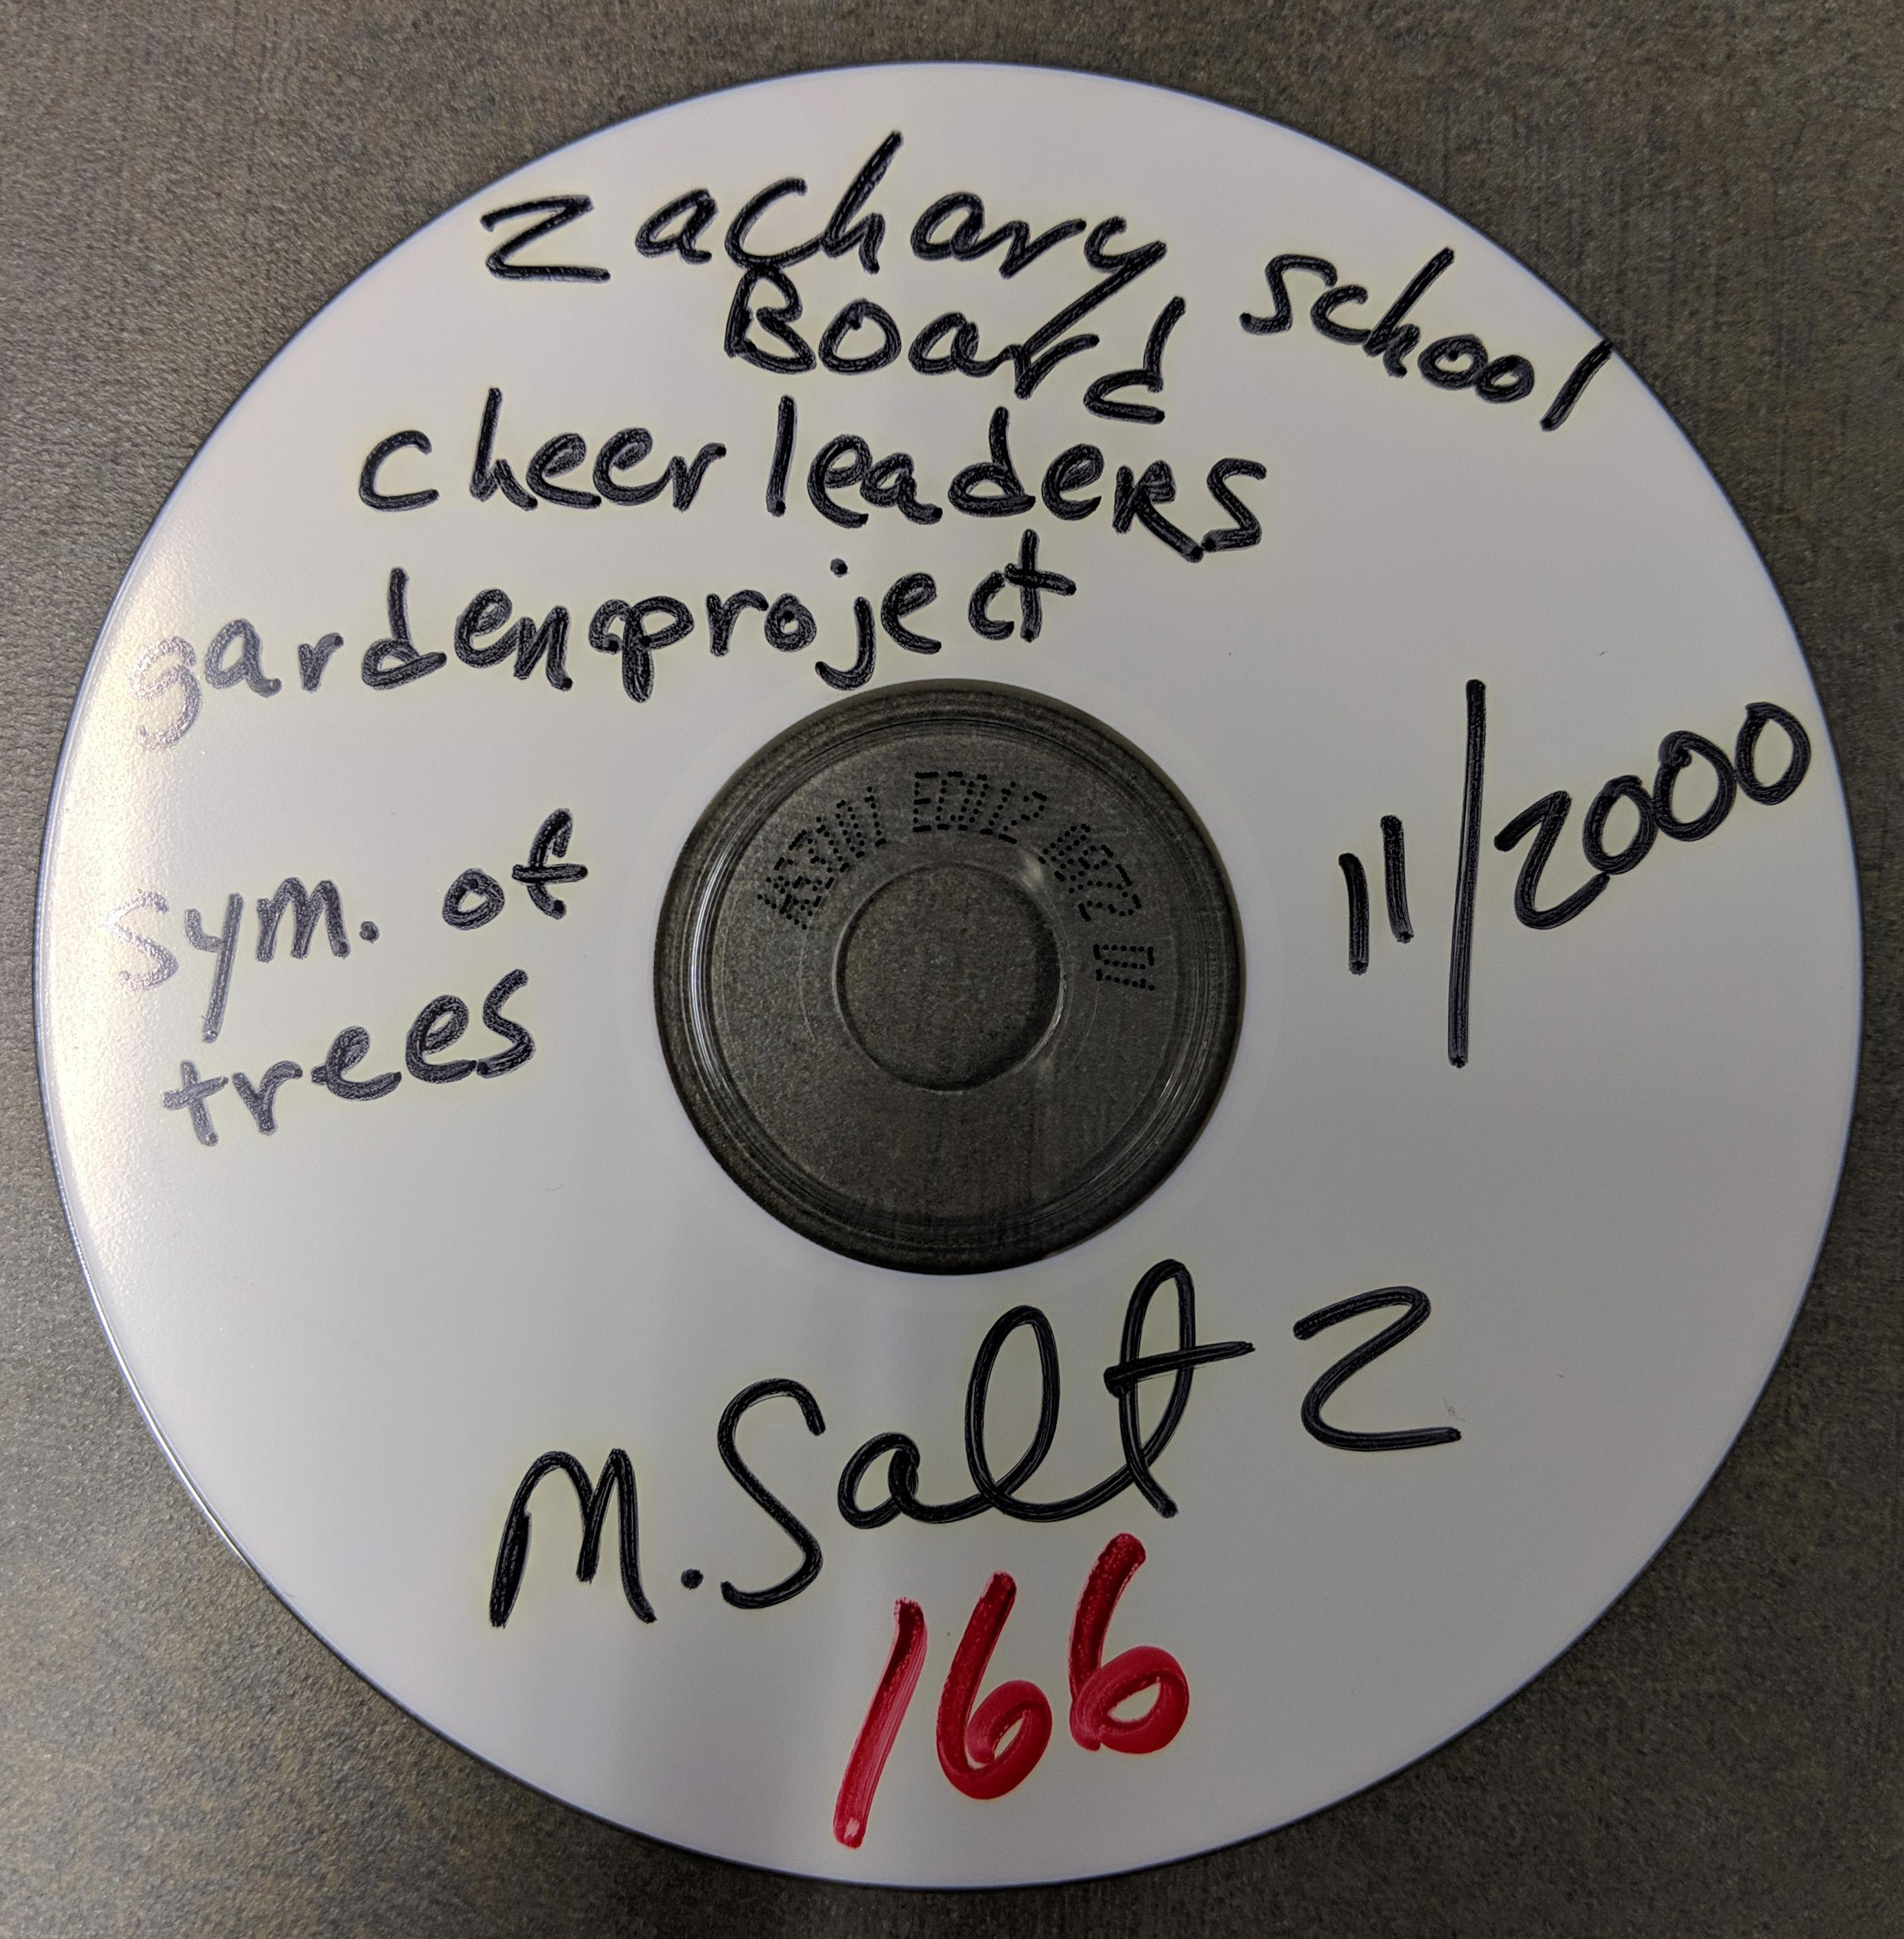 Zachary School
Board
cheerleaders
garden project
Sym. of
trees
11/2000
M. Saltz
166